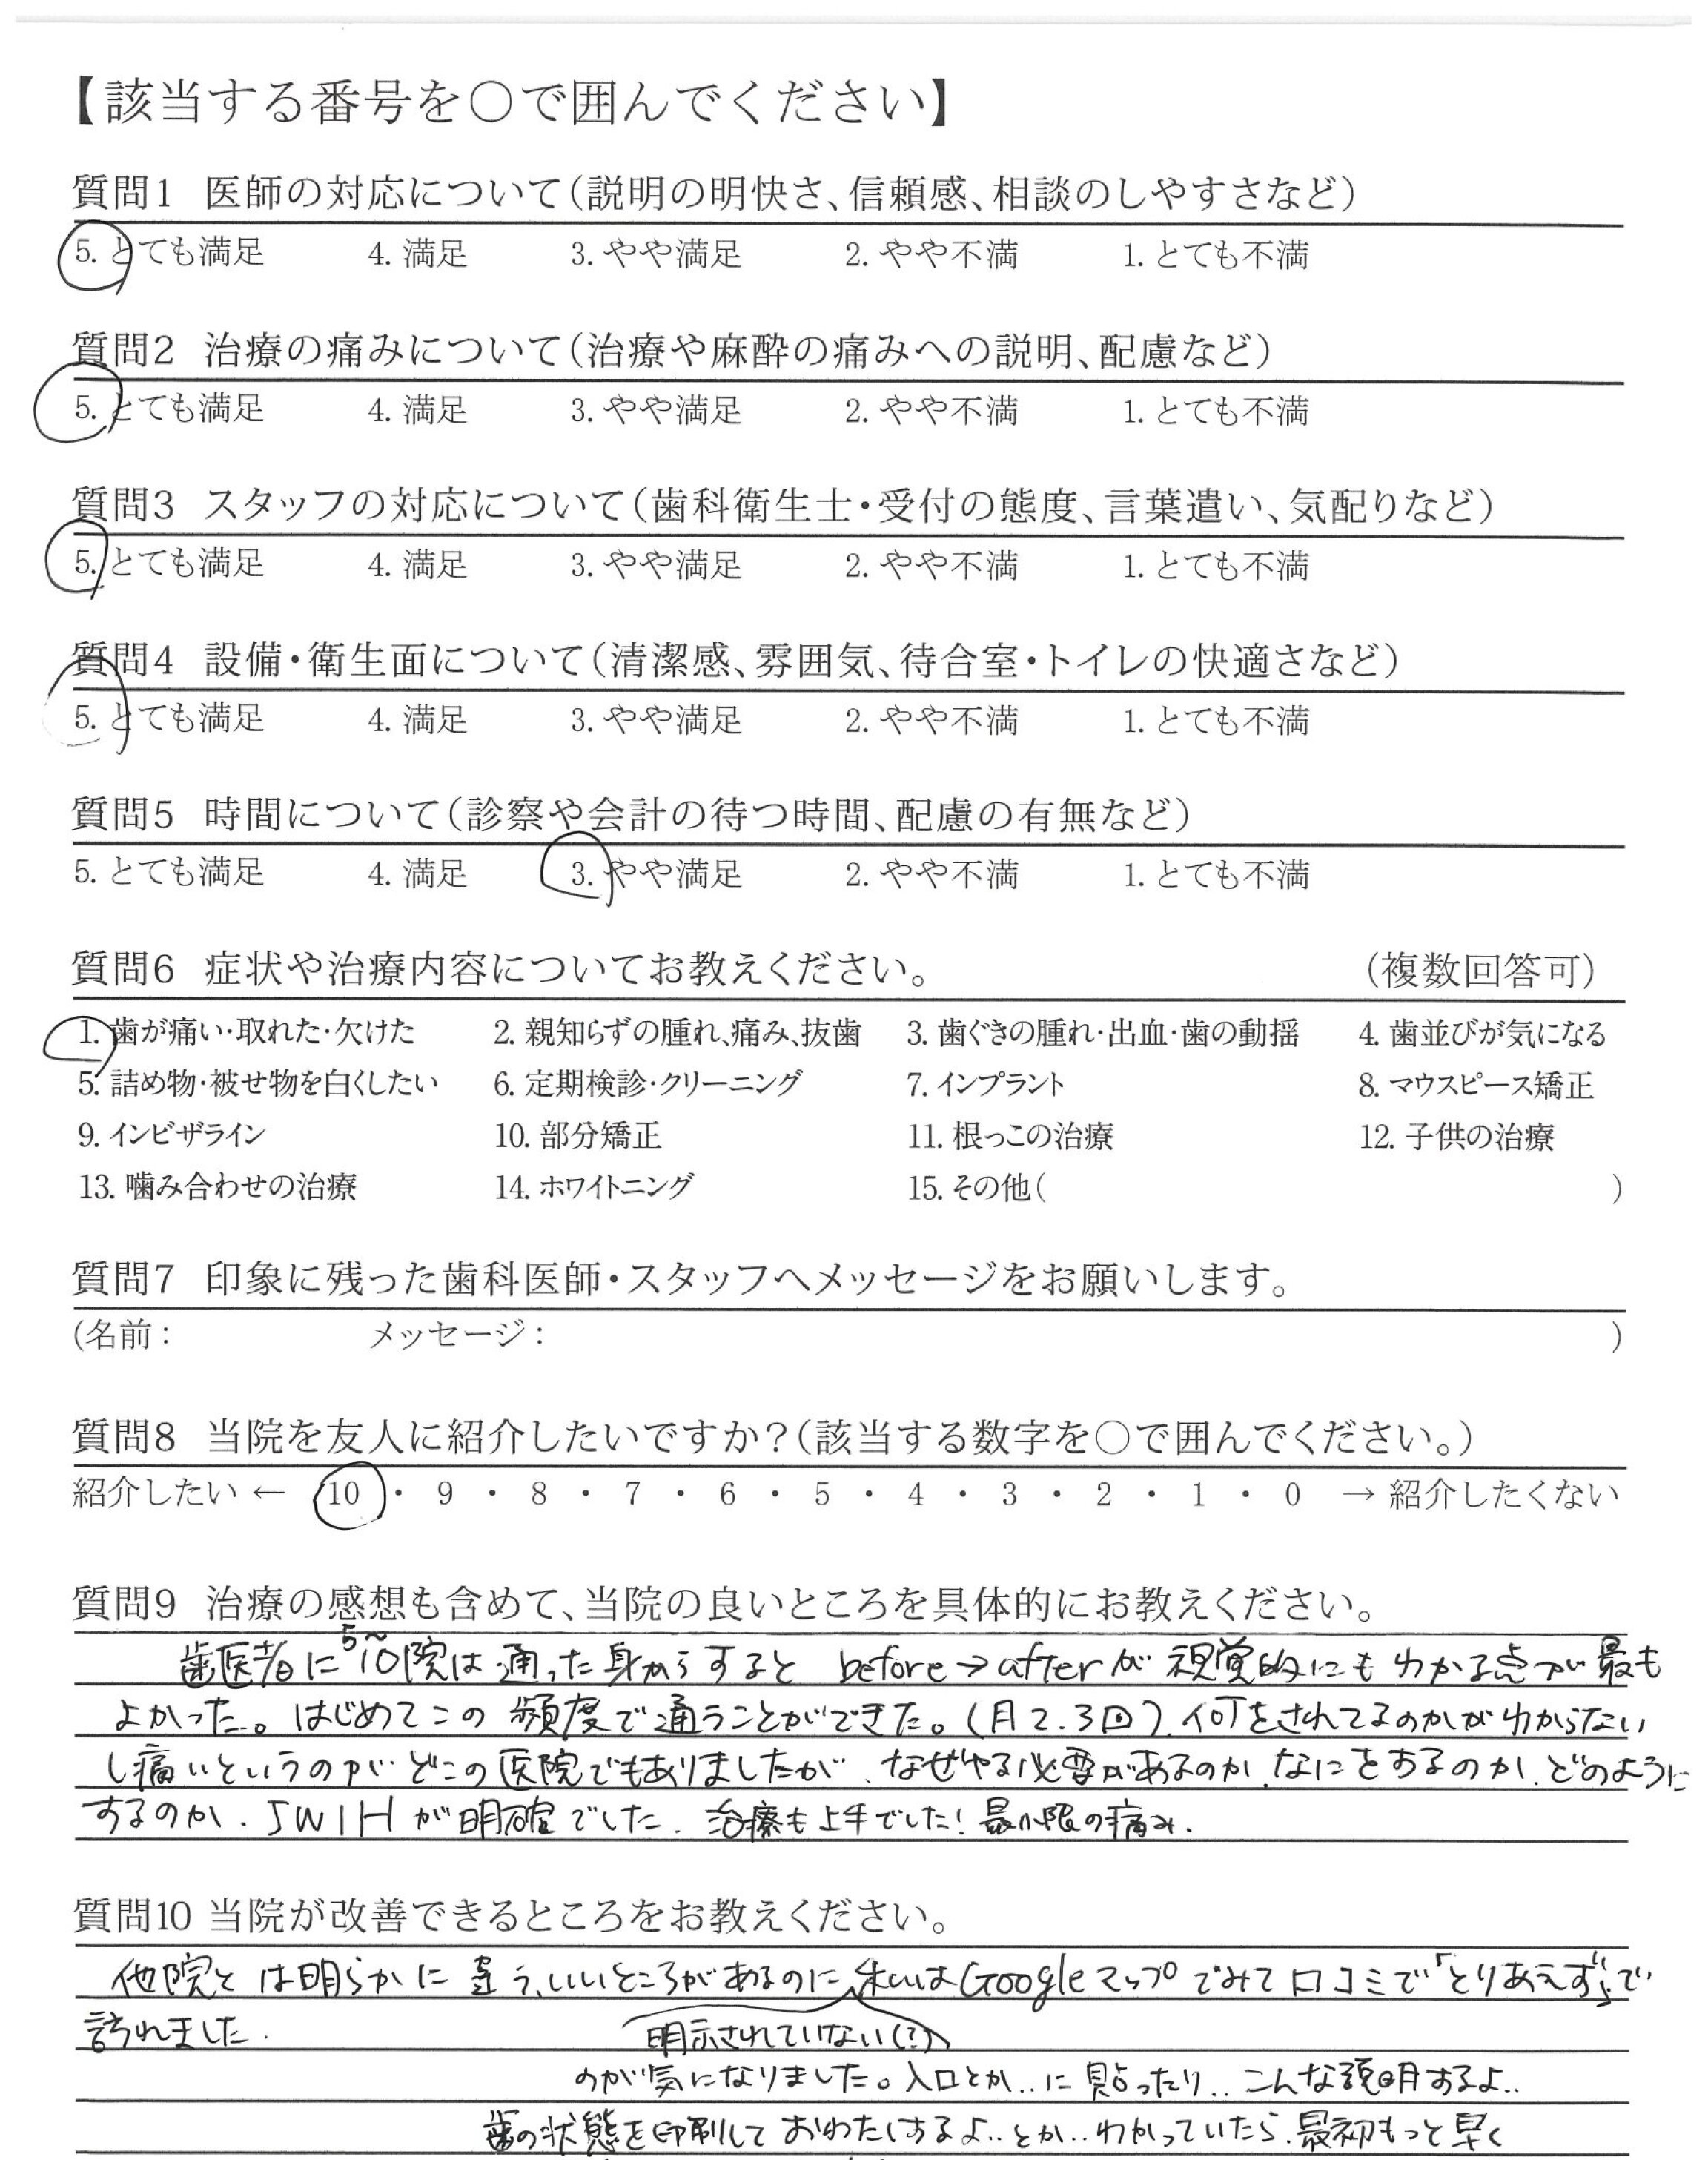 【該当する番号を○で囲んでください】
質問1 医師の対応について(説明の明快さ、信頼感、相談のしやすさなど)
5. とても満足 4. 満足 3. やや満足 2. やや不満 1. とても不満
質問2 治療の痛みについて(治療や麻酔の痛みへの説明、配慮など)
5. とても満足 4. 満足 3. やや満足 2. やや不満 1. とても不満
質問3 スタッフの対応について(歯科衛生士・受付の態度、言葉遣い、気配りなど)
5. とても満足 4. 満足 3. やや満足 2. やや不満 1. とても不満
質問4 設備・衛生面について(清潔感、雰囲気、待合室・トイレの快適さなど)
5. とても満足 4. 満足 3. やや満足 2. やや不満 1. とても不満
質問5 時間について(診察や会計の待つ時間、配慮の有無など)
5. とても満足 4. 満足 3. やや満足 2. やや不満 1. とても不満
質問6 症状や治療内容についてお教えください。 (複数回答可)
1. 歯が痛い・取れた・欠けた 2. 親知らずの腫れ、痛み、抜歯 3. 歯ぐきの腫れ・出血・歯の動揺 4. 歯並びが気になる
5. 詰め物・被せ物を白くしたい 6. 定期検診・クリーニング 7. インプラント 8. マウスピース矯正
9. インビザライン 10. 部分矯正 11. 根っこの治療 12. 子供の治療
13. 噛み合わせの治療 14. ホワイトニング 15. その他( )
質問7 印象に残った歯科医師・スタッフへメッセージをお願いします。
(名前: メッセージ: )
質問8 当院を友人に紹介したいですか?(該当する数字を○で囲んでください。)
紹介したい ← 10 ・ 9 ・ 8 ・ 7 ・ 6 ・ 5 ・ 4 ・ 3 ・ 2 ・ 1 ・ 0 → 紹介したくない
質問9 治療の感想も含めて、当院の良いところを具体的にお教えください。
歯医者に5〜10院は通った身からすると before→afterが視覚的にもわかる点が最も
よかった。はじめてこの頻度で通うことができた。(月2.3回)何をされてるのかがわからない
し痛いというのがどこの医院でもありましたが、なぜやる必要があるのか、なにをするのか、どのように
するのか、5W1Hが明確でした。治療も上手でした!最小限の痛み.
質問10 当院が改善できるところをお教えください。
他院とは明らかに違う、いいところがあるのに 私はGoogleマップでみて口コミで「とりあえず」で
訪れました. 明示されていない(?)
のが気になりました。入口とか..に貼ったり..こんな説明するよ..
歯の状態を印刷しておわたしするよ..とか..わかっていたら、最初もっと早く